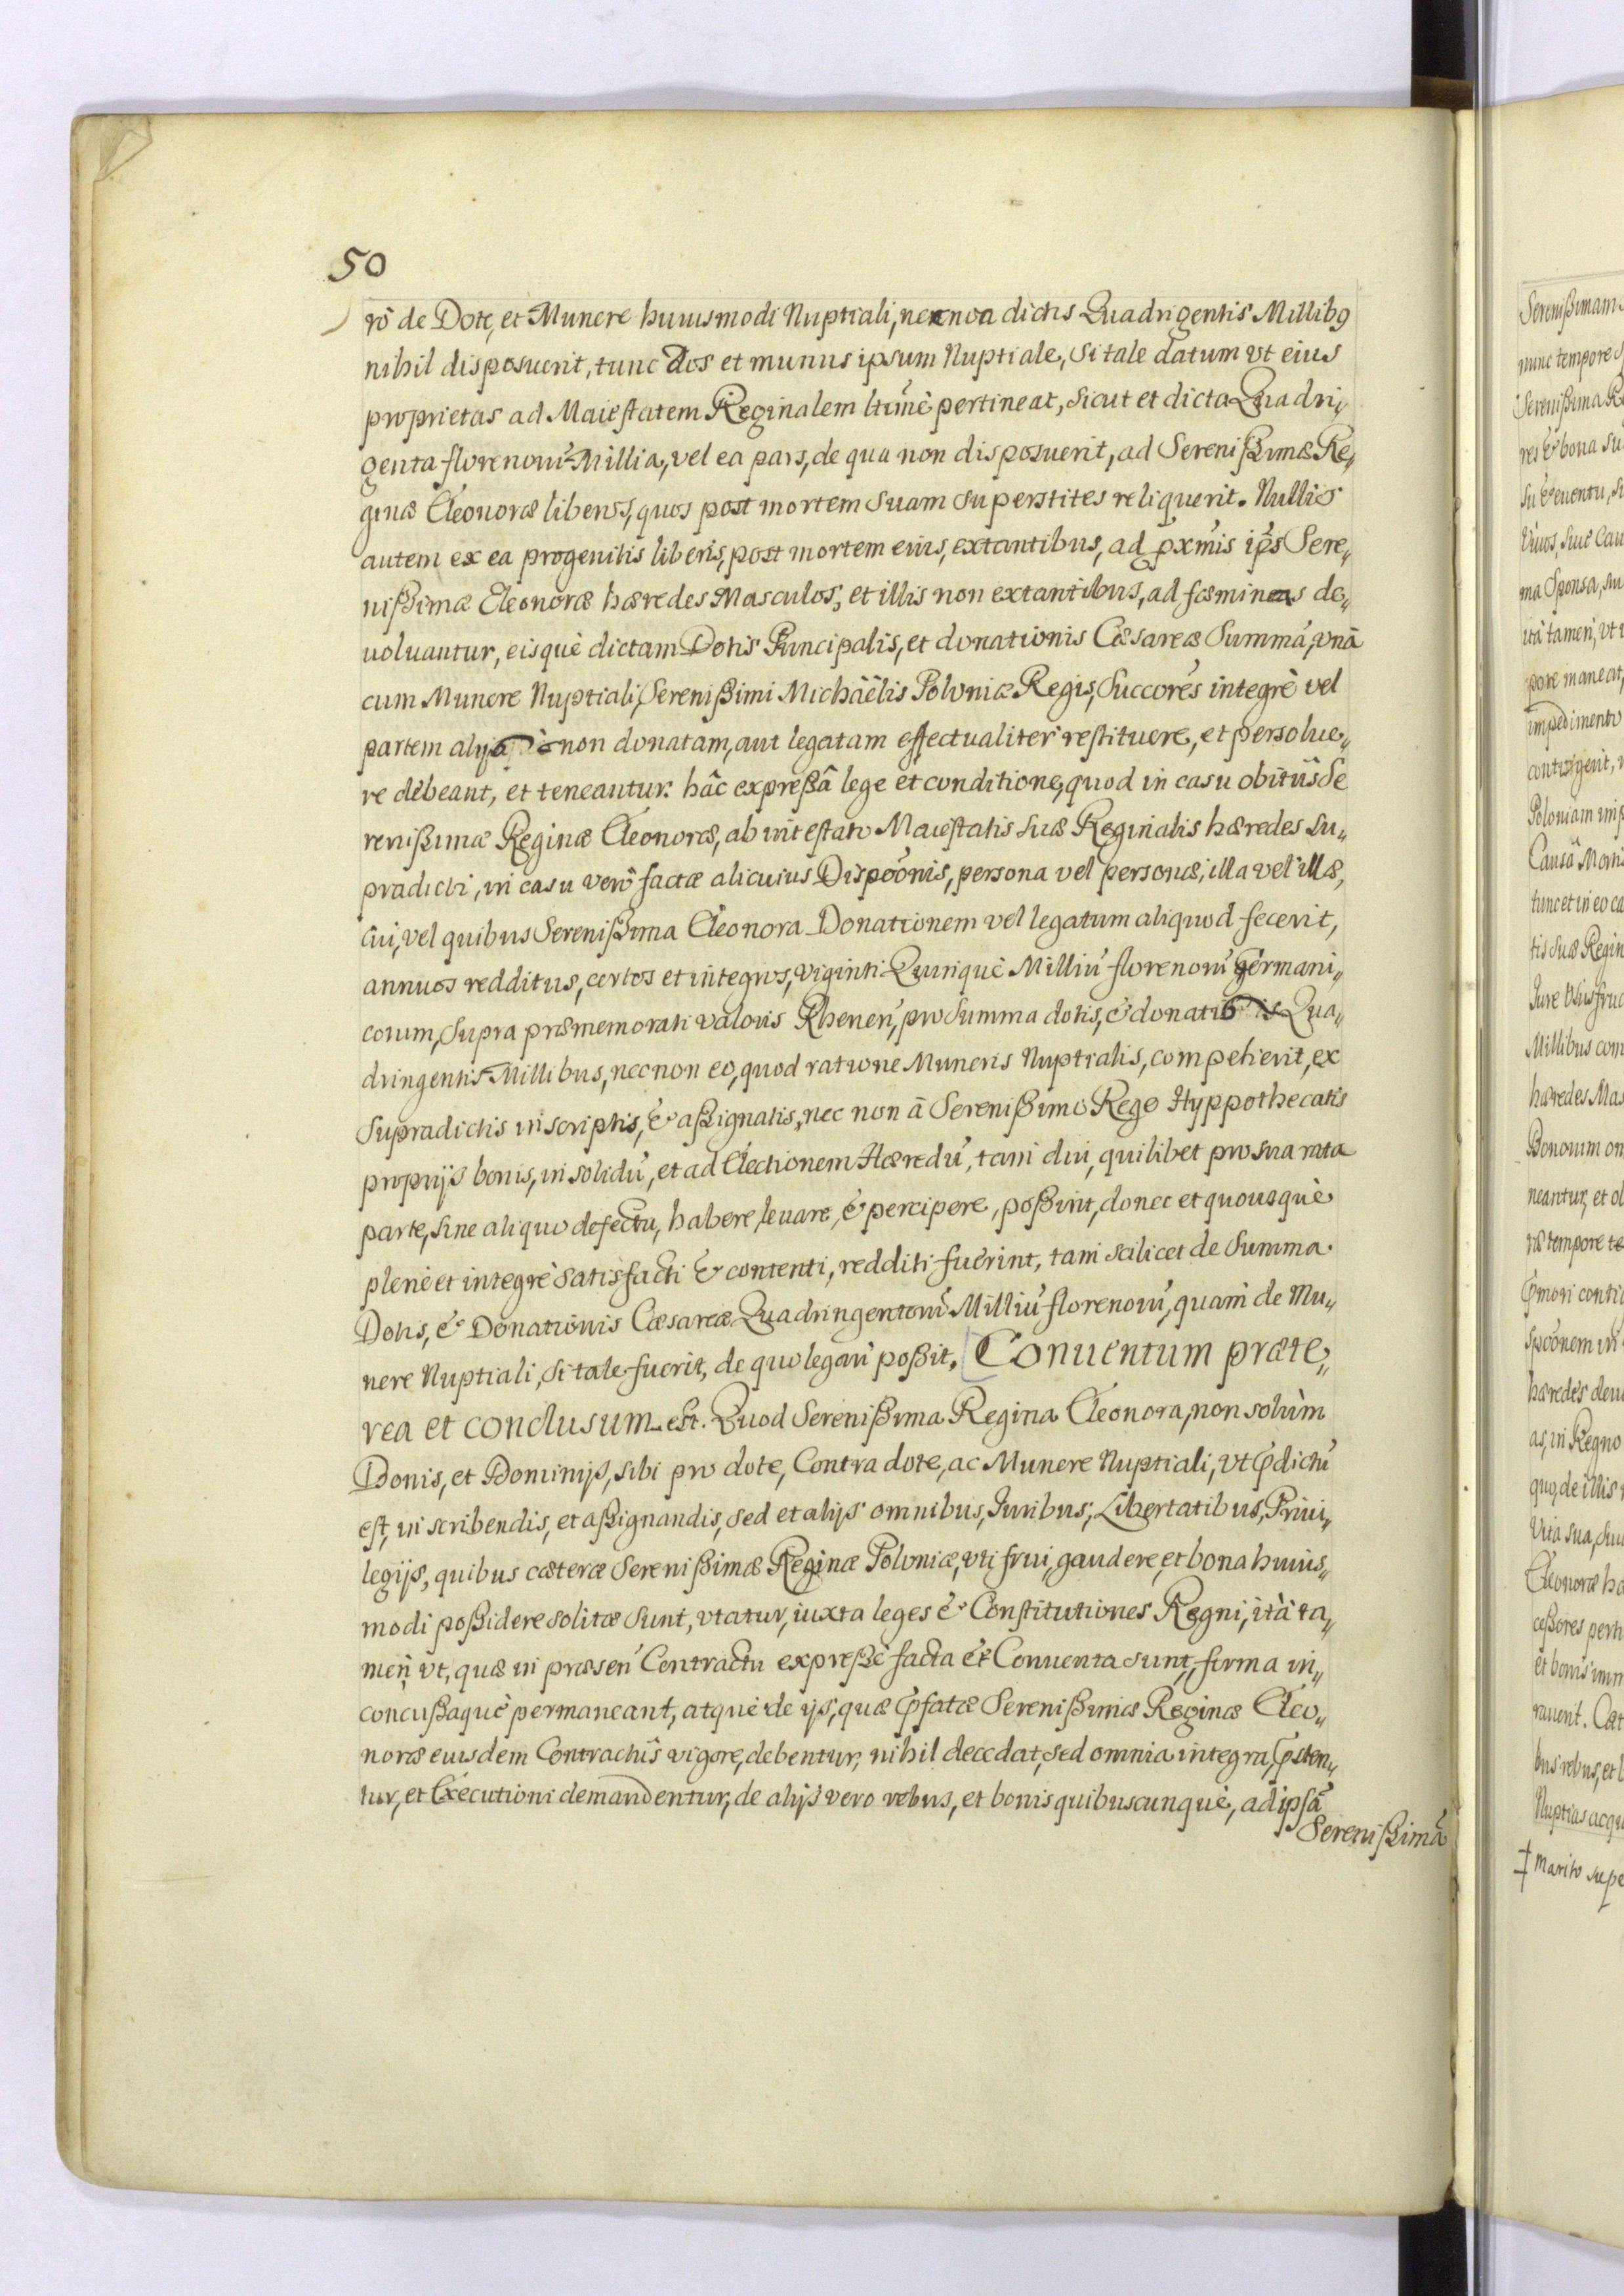 50
rò de Dote, et Munere huiusmodi Nuptiali, nec non dictis Quadrigentis Millibꝰ
nihil disposuerit, tunc dos et munus ipsum Nuptiale, si tale datum vt eius
proprietas ad Maiestatem Reginalem ltimè pertineat, sicut et dicta Quadri„
genta florenorũ Millia, vel ea pars, de qua non disposuerit, ad Serenißimæ Re„
ginæ Eleonoræ liberos, quos post mortem suam superstites reliquerit. Nullis
autem ex ea progenitis liberis, post mortem eius, extantibus, ad pxmis ips̃ Sere„
nißimæ Eleonoræ hæredes Masculos, et illis non extantibus, ad fæmineas de„
uoluantur, eisquè dictam Dotis Principalis, et donationis Cæsareæ Summã, vnâ
cum Munere Nuptiali, Serenißimi Michäélis Poloniæ Regis, Succorés integrè vel
partem non donatam, aut legatam effectualiter restituere, et persolue„
re debeant, et teneantur. hâc expreßâ lege et conditione, quod in casu obitûs Se
renißimæ Reginæ Eleonoræ, ab intestato Maiestatis suæ Reginalis hæredes su„
pradicti, in casu verò factæ alicuius Dispoõnis, persona vel personæ, illa vel illæ,
cui, vel quibus Serenißima Eleonora Donationem vel legatum aliquod fecerit,
annuos redditus, certos et integros, viginti Quinquè Milliũ florenorũ Germani„
corum, supra præmemorati valoris Rhenen̄, pro Summa dotis, & donationis Qua„
dringentis Millibus, necnon eo, quod ratione Muneris Nuptialis, competierit, ex
supradictis inscriptis, & aßignatis, nec non à Serenißimo Rege Hyppothecatis
proprijs bonis, in solidũ, et ad Electionem Hæredũ, tam diu, quilibet pro sua rata
parte, sine aliquo defectu, habere, leuare, & percipere, poßint, donec et quousquè
plenè et integrè satisfacti & contenti, redditi fuerint, tam scilicet de Summa
Dotis, & Donationis Cæsareæ Quadringentorũ Milliũ florenorũ, quam de Mu„
nere Nuptiali, si tale fuerit, de quo legari poßit. Conuentum præte„
rea et conclusum est. Quod Serenißima Regina Eleonora, non solùm
Donis, et Dominijs, sibi pro dote, Contra dote, ac Munere Nuptiali, vt p̃dictũ
est, inscribendis, et aßignandis, sed et alijs omnibus, Juribus, Libertatibus, Priui„
legijs, quibus cæteræ Serenißimæ Reginæ Poloniæ, vti frui, gaudere, et bona huius„
modi poßidere solitæ sunt, vtatur, iuxta leges & Constitutiones Regni, ità ta„
men, vt, quæ in præsen̄ Contractu expreßè facta & Conuenta sunt, firma in„
concußaquè permaneant, atquè de ijs, quæ p̃fatæ Serenißimæ Reginæ Eleo„
noræ eiusdem Contractûs vigore, debentur, nihil decedat, sed omnia integra, p̃sten„
tur, et Executioni demandentur, de alijs vero rebus, et bonis quibuscunquè, ad ipsã
Serenißimã